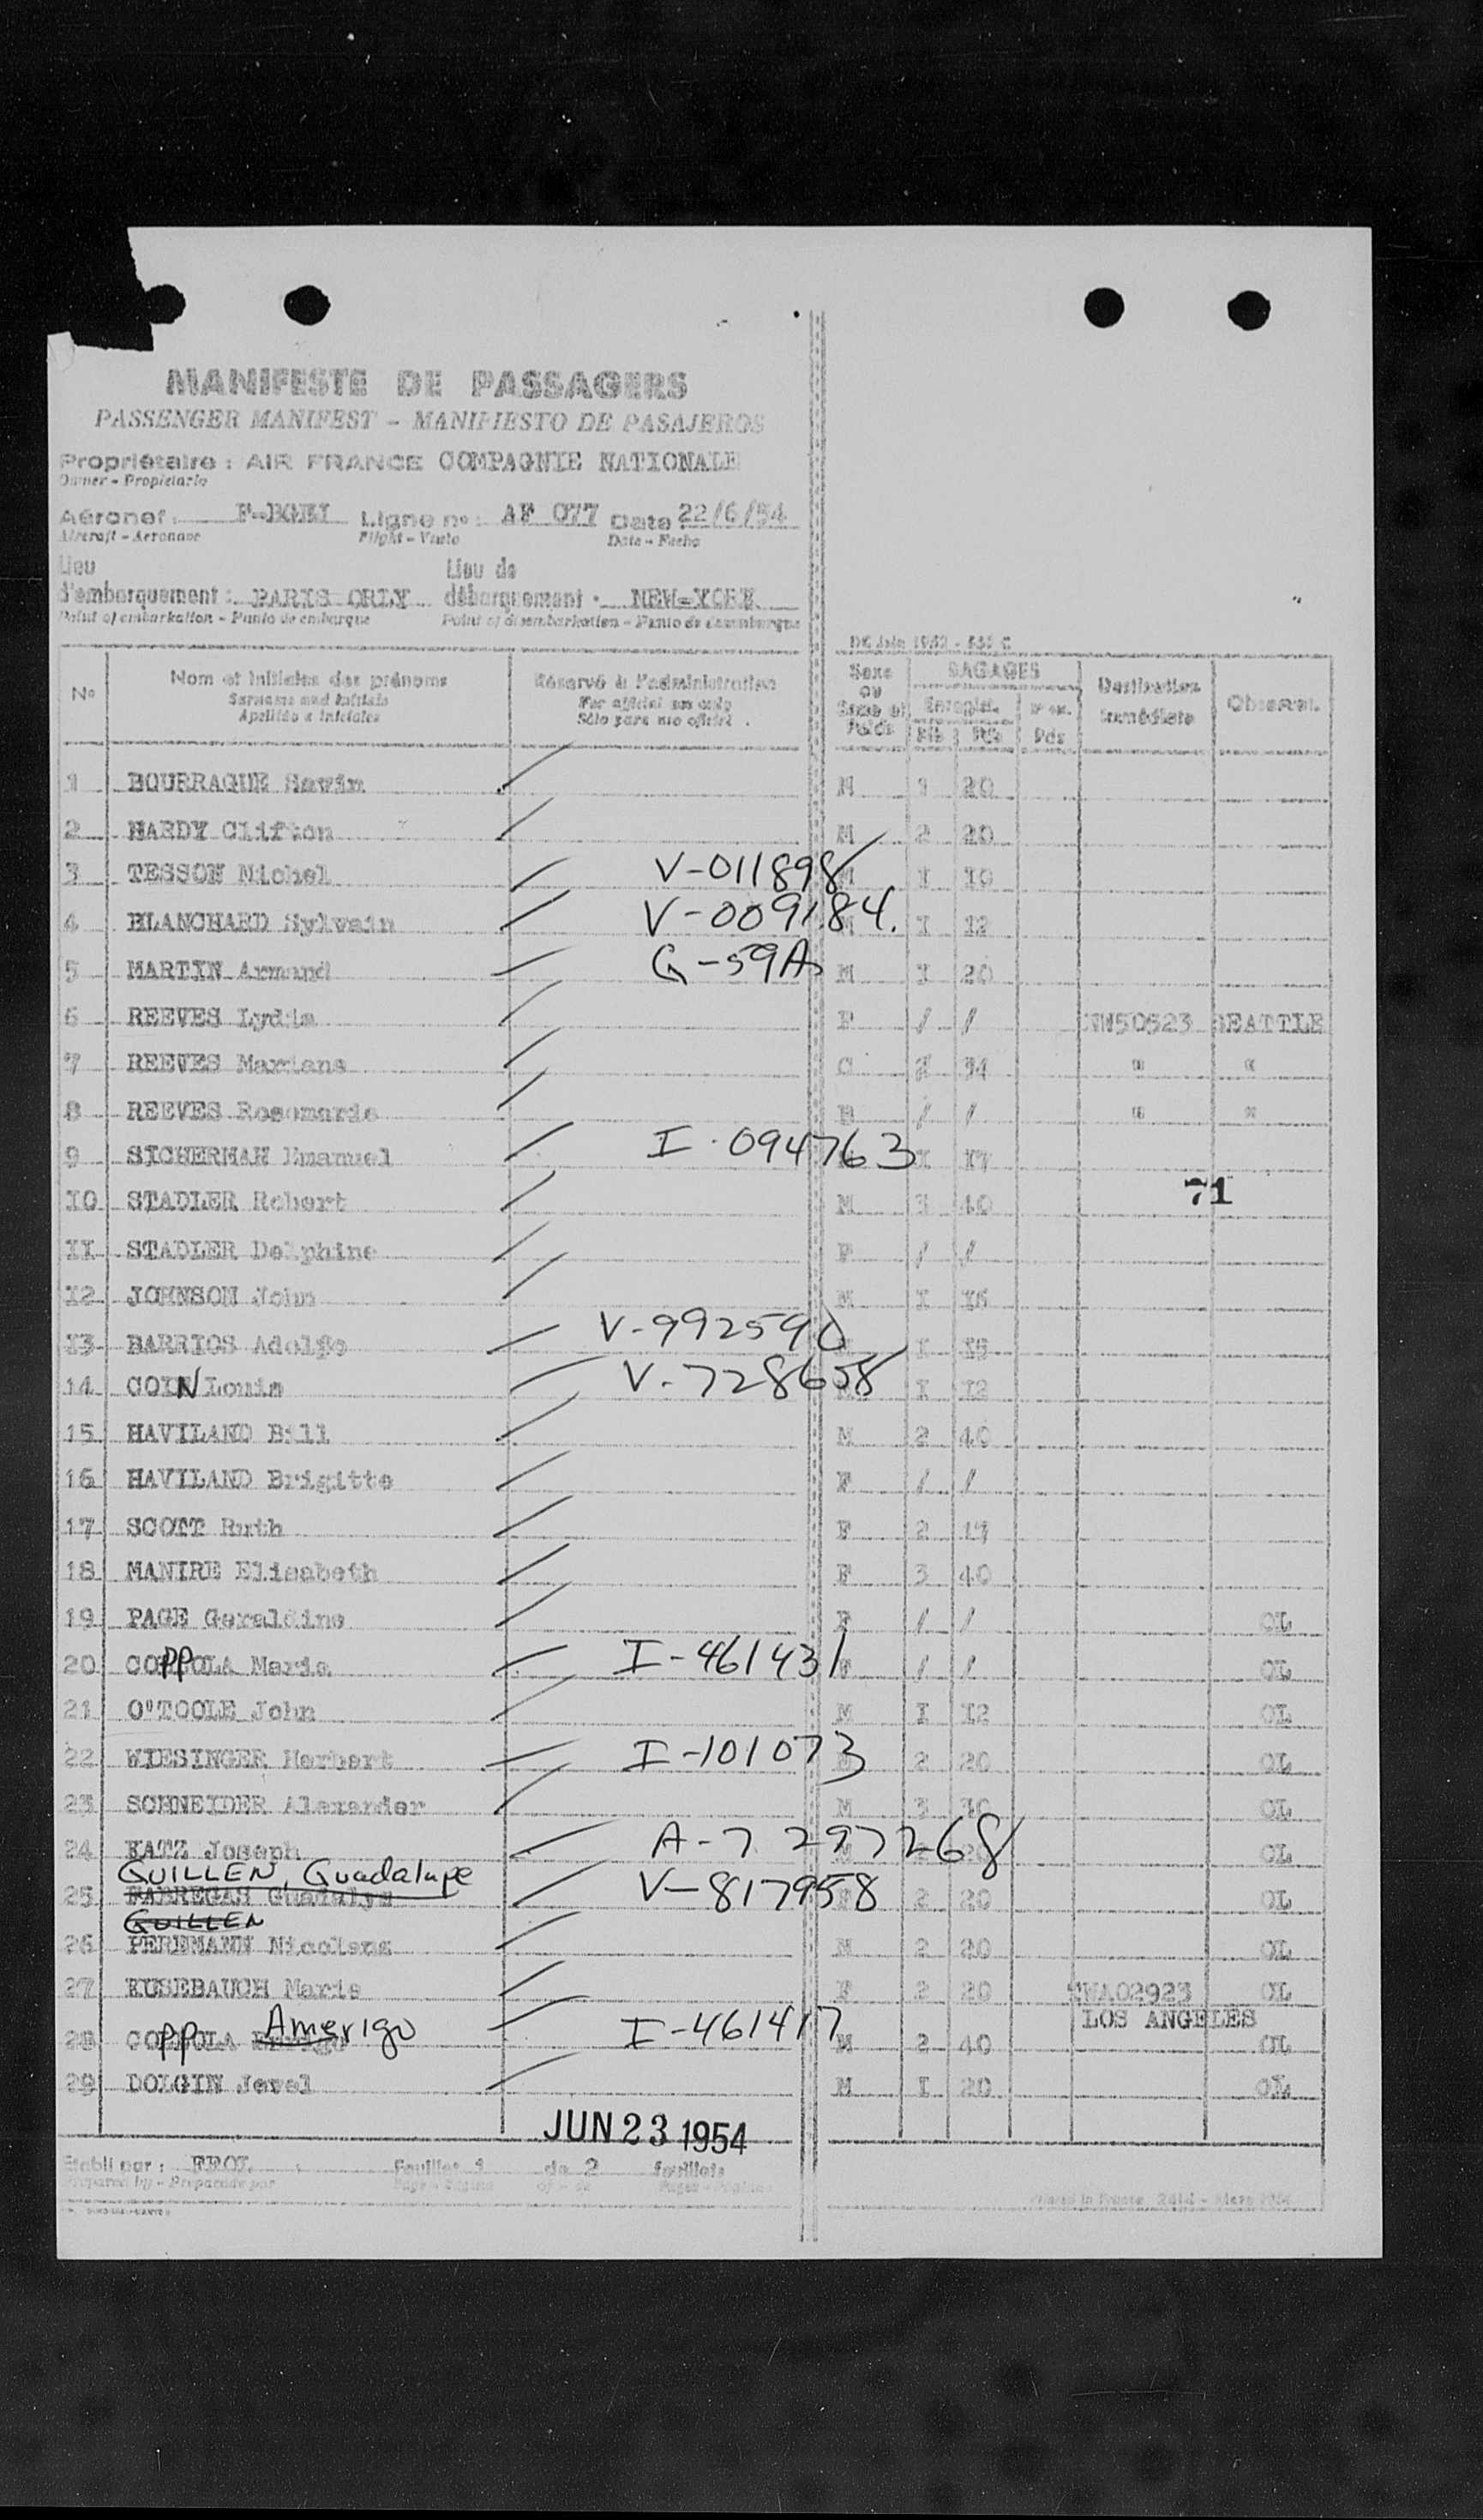 MANIFESTE DE PASSAGERS
PASSENGER MANIFEST - MANIFIESTO DE PASAJEROS
Propriétaire : AIR FRANCE COMPAGNIE NATIONALE
Owner - Propietario
Aéronef : Ligne nº : AF 077 Date 22/6/54
Aircraft - Aeronave Flight - Vuelo Date - Fecha
Lieu d'embarquement : PARIS ORLY Lieu de débarquement : NEW-YORK
Point of embarkation - Punto de embarque Point of disembarkation - Punto de desembarque
Nº Nom et initiales des prénoms Réservé à l'administration Sexe ou BAGAGES Destination immédiate Observat.
Surname and initials For official use only Enregist.
Apellido e iniciales Sólo para uso oficial Pds
1 BOURRAQUE Savin M 1 20
2 HARDY Clifton M 2 20
3 TESSON Michel V-011898 M I 10
4 BLANCHARD Sylvain V-009184. I 12
5 MARTIN Armand G-59A M I 20
6 REEVES Lydia F / / NW50623 SEATTLE
7 REEVES Mariana C 2 34 " "
8 REEVES Rosemarie / / " "
9 SICHERMAN Emanuel I-094763 I 17
10 STADLER Robert M 3 40
71
11 STADLER Delphine F / /
12 JOHNSON John M I 16
13 BARRIOS Adolfo V-992590 I
14 COIN Louis V-728658 I 12
15 HAVILAND Bill M 2 40
16 HAVILAND Brigitte F / /
17 SCOTT Ruth F 2 19
18 MANIRE Elisabeth F 3 40
19 PAGE Geraldine F / / OL
20 COPPOLA Maria I-461431 F / / OL
21 O'TOOLE John M I 12 OL
22 WIESINGER Herbert I-101073 2 20 OL
23 SCHNEIDER Alexander M 3 30 OL
24 KATZ Joseph A-7 297268 20 OL
GUILLEN, Guadalupe
25 FABREGAS V-817958 F 2 20 OL
GUILLEN
26 Nicolens M 2 20 OL
27 KUSEBAUCH Marie F 2 20 TWA02923 OL
LOS ANGELES
28 COPPOLA Amerigo I-461417 M 2 40 OL
29 DOLGIN Jevel M I 20 OL
JUN 23 1954
Etabli par : Feuillet 1 de 2 feuillets
Prepared by - Preparado por